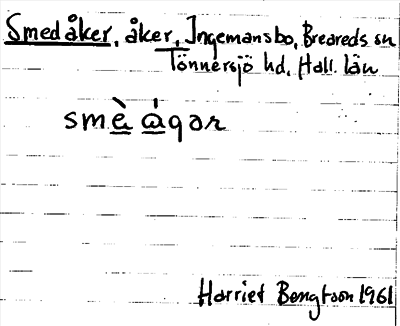 Smedåker, åker, Ingemansbo, Breareds sn
Tönnersjö hd, Hall. län
smè̲ å̲̀gər
Harriet Bengtson 1961